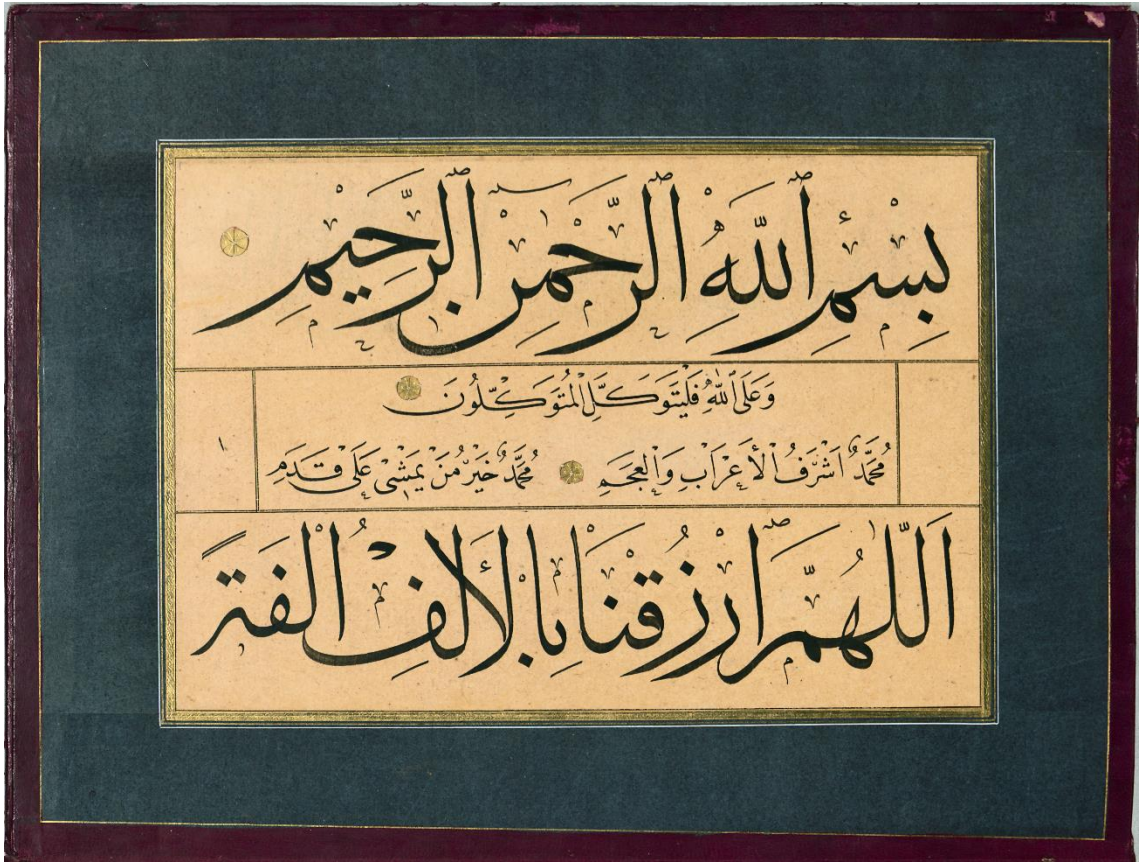 بِسْمِ ٱللَّهِ ٱلرَّحْمٰنِ ٱلرَّحِيمِ
وَعَلَى ٱللّٰهِ فَلْيَتَوَكَّلِ الْمُتَوَكِّلُونَ
مُحَمَّدٌ اَشْرَفُ الْأَعْرَابِ وَالْعَجَمِ مُحَمَّدٌ خَيْرُ مَنْ يَمْشِى عَلَى قَدَمِ
١
اَللّٰهُمَّ ارْزُقْنَا بِالْأَلِفِ اُلْفَةً